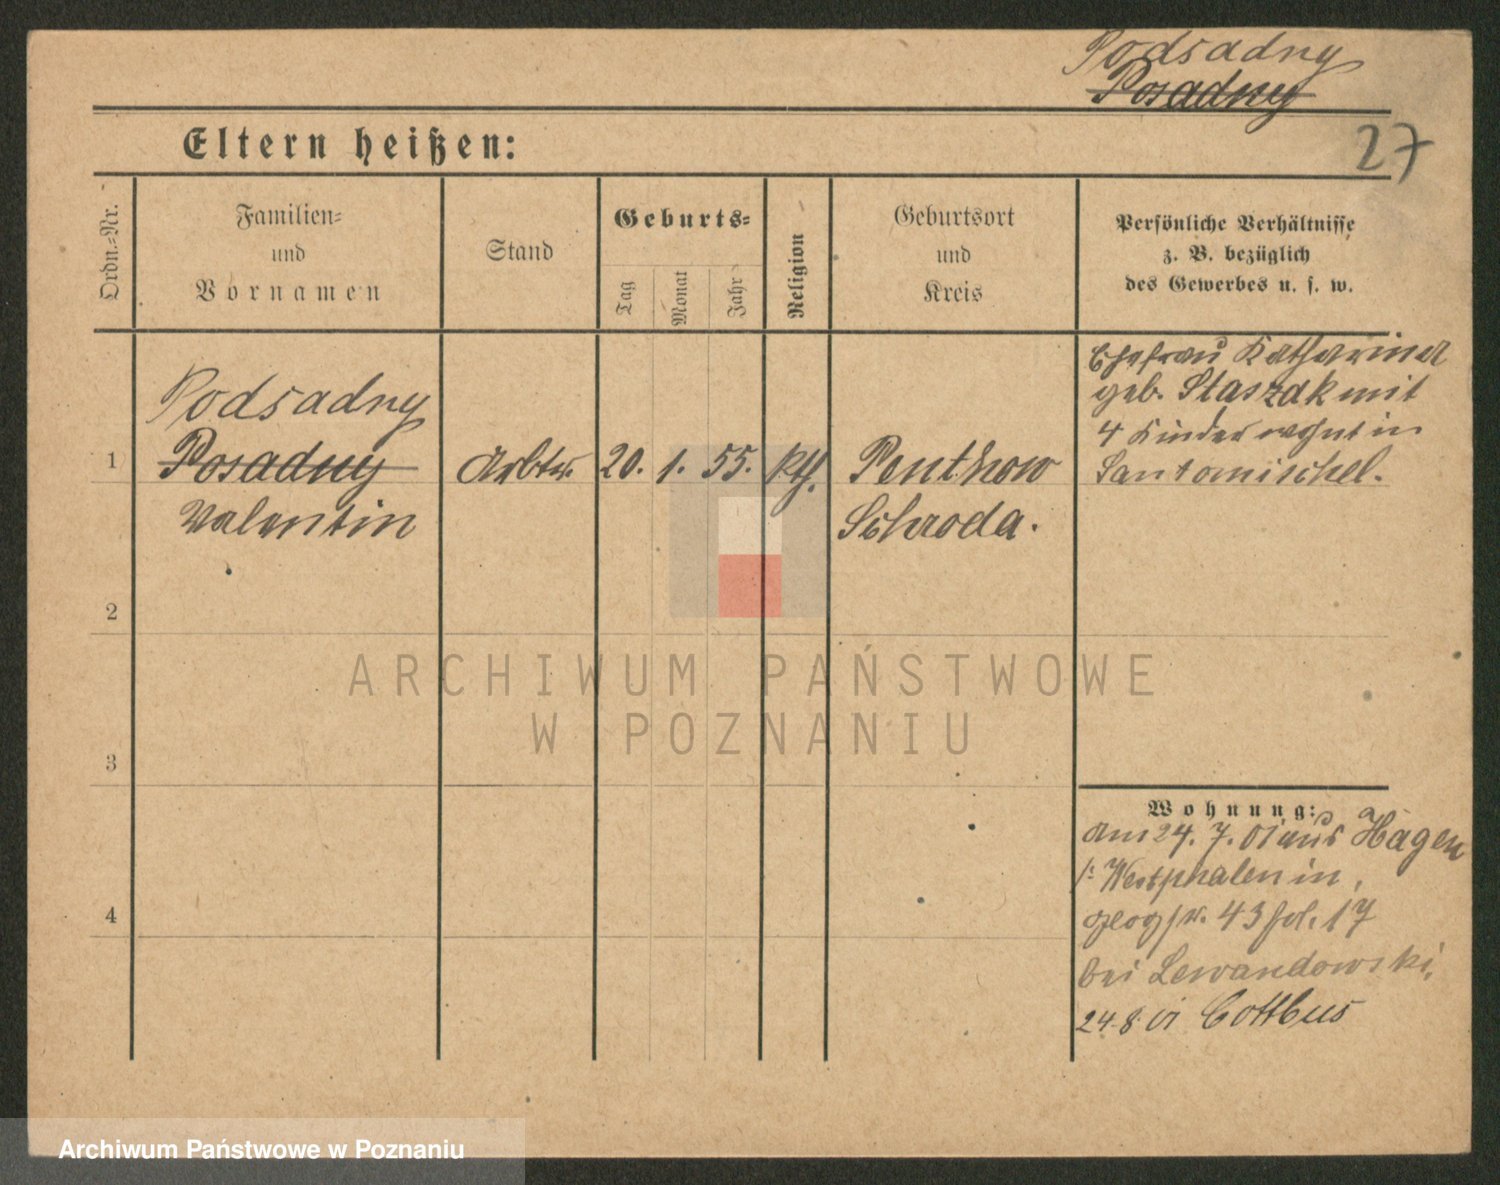 Podsadny
Posadny
27
Eltern heißen:
Ordn.-Nr.
Familien-
und
Vornamen
Stand
Geburts-
Tag
Monat
Jahr
Religion
Geburtsort
und
Kreis
Persönliche Verhältnisse
z. B. bezüglich
des Gewerbes u. s. w.
Podsadny
1 Posadny Arbtr. 20. 1. 55. kth. Penthow
Valentin Schroda.
Ehefrau Katharina
geb. Staszak mit
4 Kinder wohnt in
Santomischel.
2
3
4
Wohnung:
Am 24. 7. 01 aus Hagen
i. Westphalen in
43 fol. 17
bei Lewandowski.
24.8.01 Cottbus
ARCHIWUM PAŃSTWOWE
W POZNANIU
Archiwum Państwowe w Poznaniu